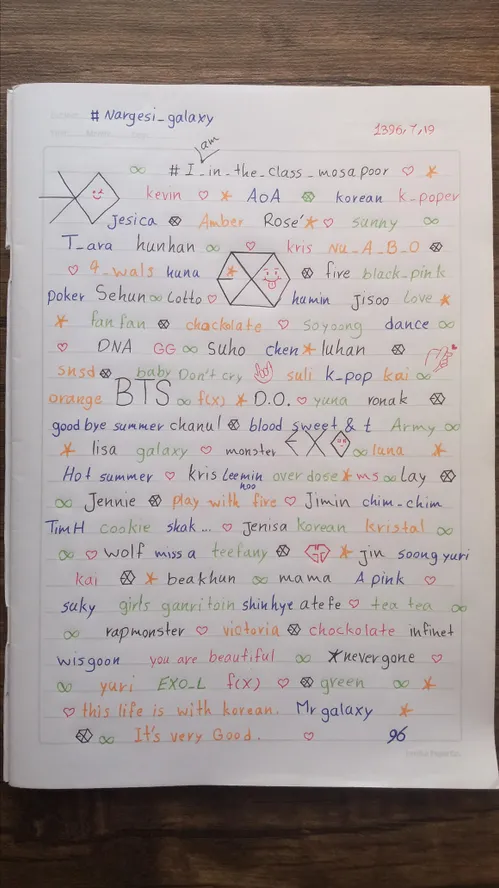 # Nargesi_galaxy
1396,7,19
am
∞ # I_in_the_class_mosa poor ♡ *
kevin ♡ * AoA korean k_poper
Jesica Amber Rose' * ♡ sunny ∞
T_ara hunhan ∞ ♡ kris Nu_A_B_O
♡ 4_wals huna * five black_pink
poker Sehun ∞ Lotto ♡ humin Jisoo Love *
* fan fan chackolate ♡ soyoong dance ∞
♡ DNA GG ∞ Suho chen * luhan
snsd baby Don't cry suli k_pop kai ∞
orange BTS ∞ f(x) * D.O. ♡ yuna ronak
good bye summer chanul blood sweet & t Army ∞
* lisa galaxy ♡ monster EXO ∞ luna *
Hot summer ♡ kris Leemin hoo over dose * ms ∞ Lay
∞ Jennie play with fire ♡ Jimin chim_chim
TimH cookie shak ... ♡ Jenisa korean kristal ∞
∞ ♡ wolf miss a teefany GG * jin soong yuri
kai * beakhun ∞ mama A pink ♡
suky girls ganritoin shinhye atefe ♡ tea tea ∞
∞ rapmonster ♡ victoria chockolate infinet
wisgoon you are beautiful ∞ * never gone ♡
∞ yuri EXO_L f(x) ♡ green ∞ *
♡ this life is with korean. Mr galaxy *
∞ It's very Good. ♡ 96